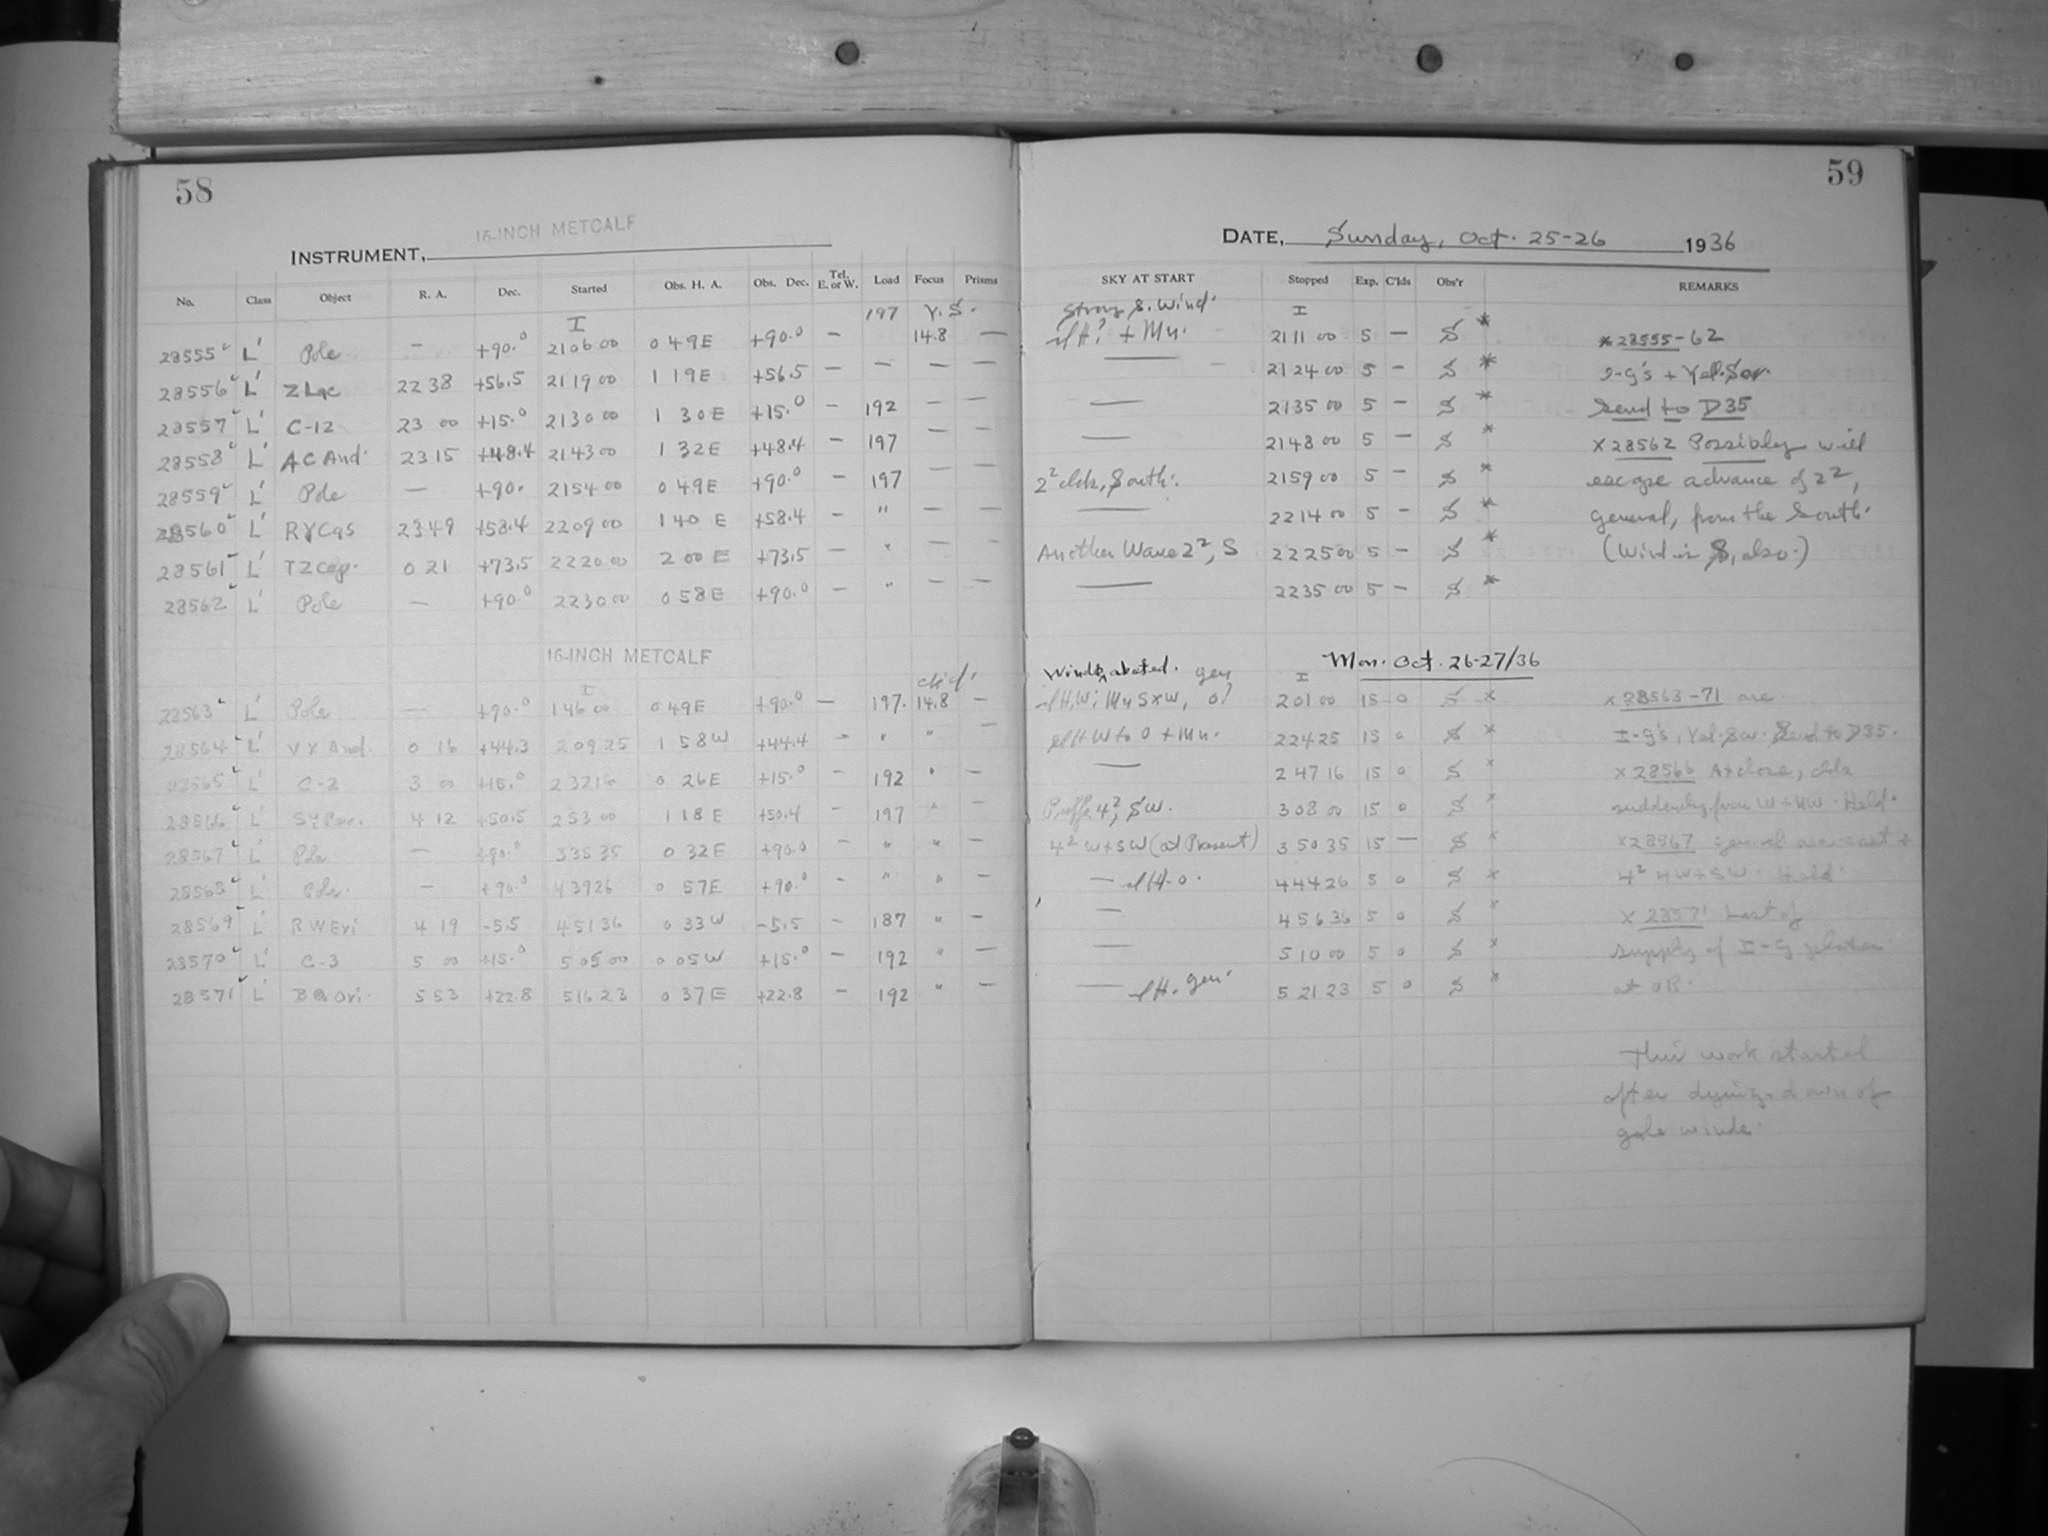 58
16-INCH METCALF
INSTRUMENT,
No. Class Object R. A. Dec. Started Obs. H. A. Obs. Dec. Tel. E. or W. Load Focus Prisms
I 197 Y.S.
28555 L' Pole — +90.0 21 06 00 0 49 E +90.0 — 14.8 —
28556 L' Z Lac 22 38 +56.5 21 19 00 1 19 E +56.5 — — — —
28557 L' C-12 23 00 +15.0 21 30 00 1 30 E +15.0 — 192 — —
28558 L' AC And. 23 15 +48.4 21 43 00 1 32 E +48.4 — 197 — —
28559 L' Pole — +90. 21 54 00 0 49 E +90.0 — 197 — —
28560 L' RY Cas 23 49 +58.4 22 09 00 1 40 E +58.4 — " — —
28561 L' TZ Cep. 0 21 +73.5 22 20 00 2 00 E +73.5 — " — —
28562 L' Pole — +90.0 22 30 00 0 58 E +90.0 — " — —
16-INCH METCALF
I
28563 L' Pole — +90.0 1 46 00 0 49 E +90.0 — 197. 14.8 —
28564 L' VX And. 0 16 +44.3 2 09 25 1 58 W +44.4 — " " —
28565 L' C-2 3 00 +15.0 2 32 16 0 26 E +15.0 — 192 " —
28566 L' SY Per. 4 12 +50.5 2 53 00 1 18 E +50.4 — 197 " —
28567 L' Pole — +90.0 3 35 35 0 32 E +90.0 — " " —
28568 L' Pole. — +90.0 4 39 26 0 57 E +90.0 — " " —
28569 L' RW Eri 4 19 -5.5 4 51 36 0 33 W -5.5 — 187 " —
28570 L' C-3 5 00 +15.0 5 05 00 0 05 W +15.0 — 192 " —
28571 L' BQ Ori. 5 53 +22.8 5 16 23 0 37 E +22.8 — 192 " —
59
DATE, Sunday, Oct. 25-26 1936
SKY AT START Stopped Exp. C'lds Obs'r REMARKS
Strong S. Wind. I
+ Mn. 21 11 00 5 — S * * 28555-62
— 21 24 00 5 — S * I-G's + Yel. Scr.
— 21 35 00 5 — S * Send to D35
— 21 48 00 5 — S * x 28562 Possibly will
2² clds, South. 21 59 00 5 — S * escape advance of 2²,
— 22 14 00 5 — S * general, from the South.
Another Wave 2², S 22 25 00 5 — S * (Wind is S, also.)
— 22 35 00 5 — S *
Mon. Oct. 26-27/36
Winds abated. gen I
2 01 00 15 0 S x x 28563-71 are
2 24 25 15 0 S x I-G's, Yel. Scr. Send to D35.
— 2 47 16 15 0 S x x 28566 At close, clds
Puffs 4², SW. 3 08 00 15 0 S x suddenly from W + NW. Held.
4² W + SW (at Present) 3 50 35 15 — S x x 28567 general overcast +
— 4 44 26 5 0 S x 4² W + SW. Held.
— 4 56 36 5 0 S x x 28571 Last of
— 5 10 00 5 0 S x supply of I-G
— gen. 5 21 23 5 0 S x at OR.
This work started
after dying-down of
gale winds.